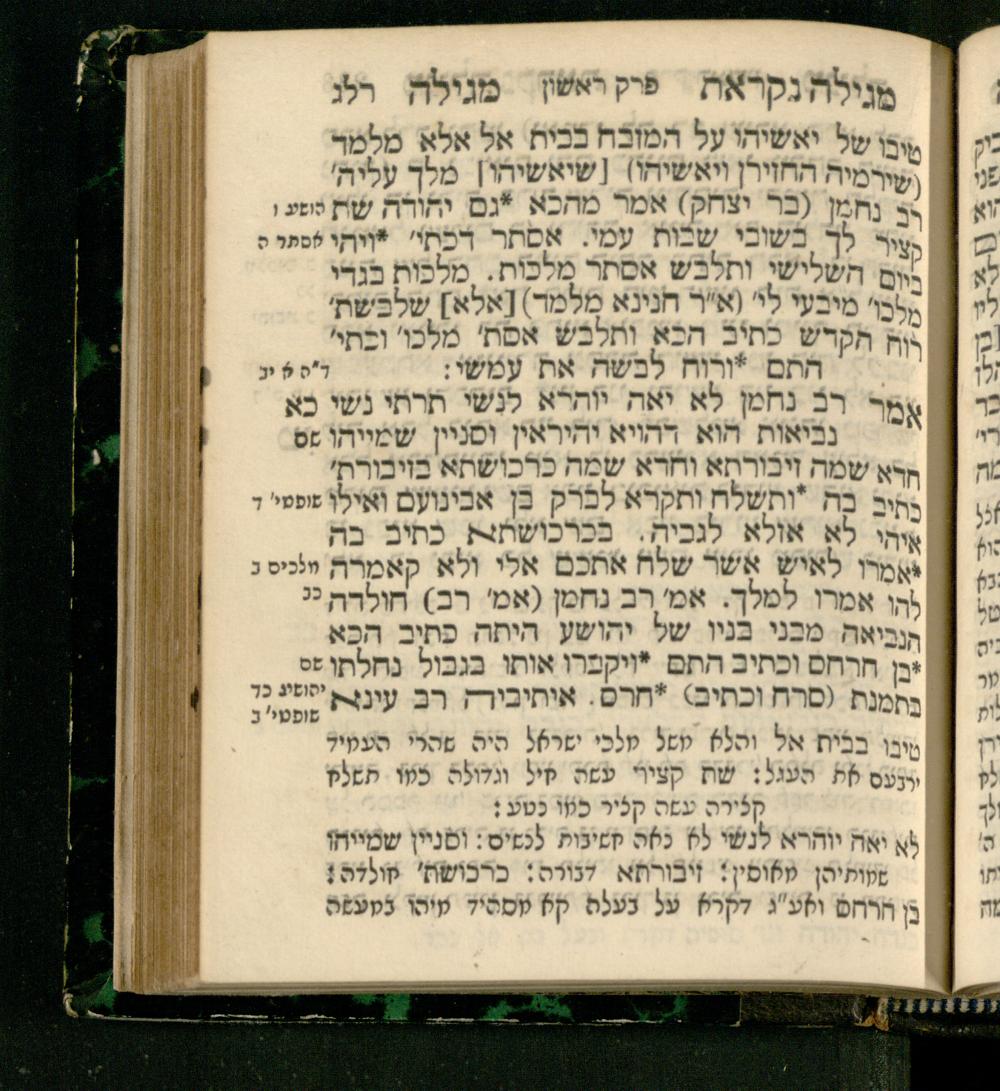 מגילה נקראת פרק ראשון מגילה רלג
טיבו של יאשיהו על המזבח בבית אל אלא מלמד
(שירמיה החזירן ויאשיהו) [שיאשיהו] מלך עליה'
רב נחמן (בר יצחק) אמר מהכא *גם יהודה שת הושע ו
קציר לך בשובי שבות עמי. אסתר דכתי' *ויהי אסתר ה
ביום השלישי ותלבש אסתר מלכות. מלכות בגדי
מלכו' מיבעי לי' (א"ר חנינא מלמד) [אלא] שלבשת'
רוח הקדש כתיב הכא ותלבש אסת' מלכו' וכתי'
התם *ורוח לבשה את עמשי: ד"ה א יב
אמר רב נחמן לא יאה יוהרא לנשי תרתי נשי כא
נביאות הוא דהויא יהיראין וסניין שמייהו שם
חדא שמה זיבורתא וחדא שמה כרכושתא בזיבורת'
כתיב בה *ותשלח ותקרא לברק בן אבינועם ואילו שופטי' ד
איהי לא אזלא לגביה. בכרכושתא כתיב בה
*אמרו לאיש אשר שלח אתכם אלי ולא קאמרה מלכים ב
להו אמרו למלך. אמ' רב נחמן (אמ' רב) חולדה כב
הנביאה מבני בניו של יהושע היתה כתיב הכא
*בן חרחם וכתיב התם *ויקברו אותו בגבול נחלתו שם
בתמנת (סרח וכתיב) *חרס. איתיביה רב עינא יהושע כד
שופטי' ב
טיבו בבית אל והלא משל מלכי ישראל היה שהרי העמיד
ירבעם את העגל: שת קציר עשה חיל וגדולה כמו תשלח
קצירה עשה קציר כמו נטע:
לא יאה יוהרא לנשי לא נאה חשיבות לנשים: וסניין שמייהו
שמותיהן מאוסין: זיבורתא דבורה: כרכושת' חולדה:
בן חרחם ואע"ג דקרא על בעלה קא מסהיד מיהו במעשה